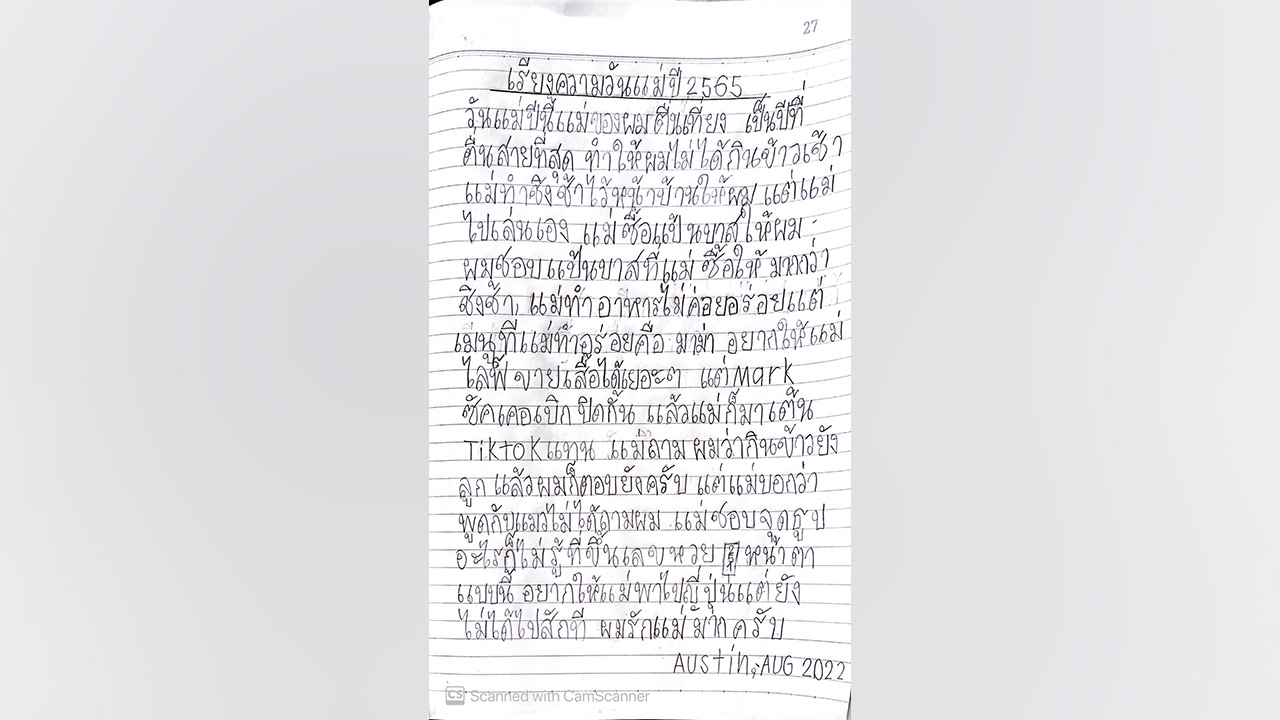 27
เรียงความวันแม่ปี 2565
วันแม่ปีนี้แม่ของผมตื่นเที่ยง เป็นปีที่
ตื่นสายที่สุด ทำให้ผมไม่ได้กินข้าวเช้า
แม่ทำชิงช้าไว้หน้าบ้านให้ผม แต่แม่
ไปเล่นเอง แม่ซื้อแป้นบาสให้ผม
ผมชอบแป้นบาสที่แม่ซื้อให้มากกว่า
ชิงช้า, แม่ทำอาหารไม่ค่อยอร่อยแต่
เมนูที่แม่ทำอร่อยคือ มาม่า อยากให้แม่
ไลฟ์ขายเสื้อได้เยอะๆ แต่ Mark
ซัคเคอเบิกปิดกั้น แล้วแม่ก็มาเต้น
Tiktok แทน แม่ถามผมว่ากินข้าวยัง
ลูก แล้วผมก็ตอบยังครับ แต่แม่บอกว่า
พูดกับแมวไม่ได้ถามผม แม่ชอบจุดธูป
อะไรก็ไม่รู้ที่ขึ้นเลขหวย หน้าตา
แบบนี้ อยากให้แม่พาไปญี่ปุ่นแต่ยัง
ไม่ได้ไปสักที ผมรักแม่มากครับ
Austin, AUG 2022
CS Scanned with CamScanner